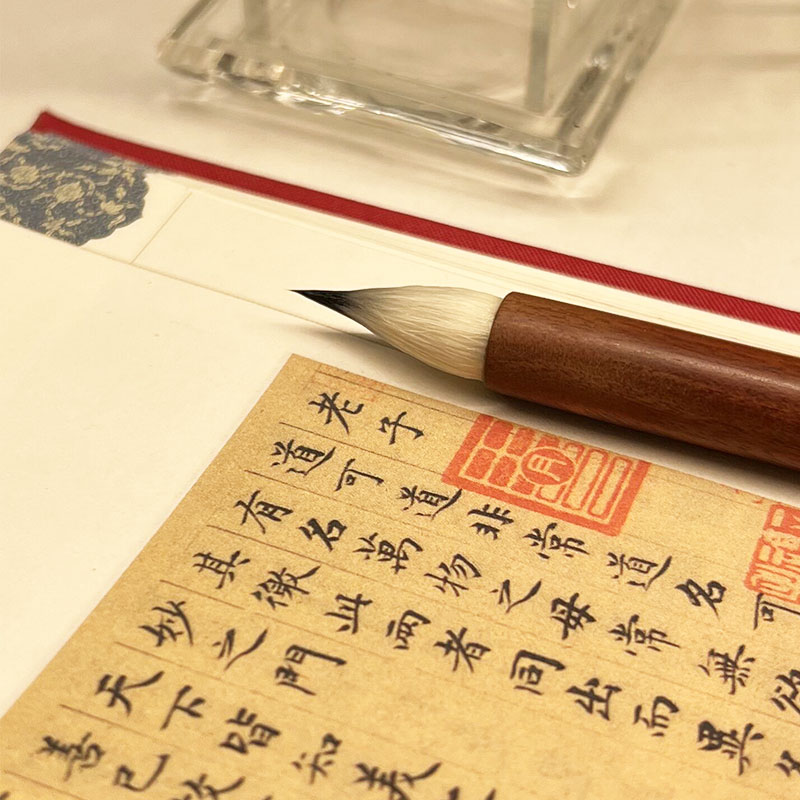 老子
道可道非常道名可
有名萬物之母常無欲
其徼此兩者同出而異名
妙之門
天下皆知
善已故